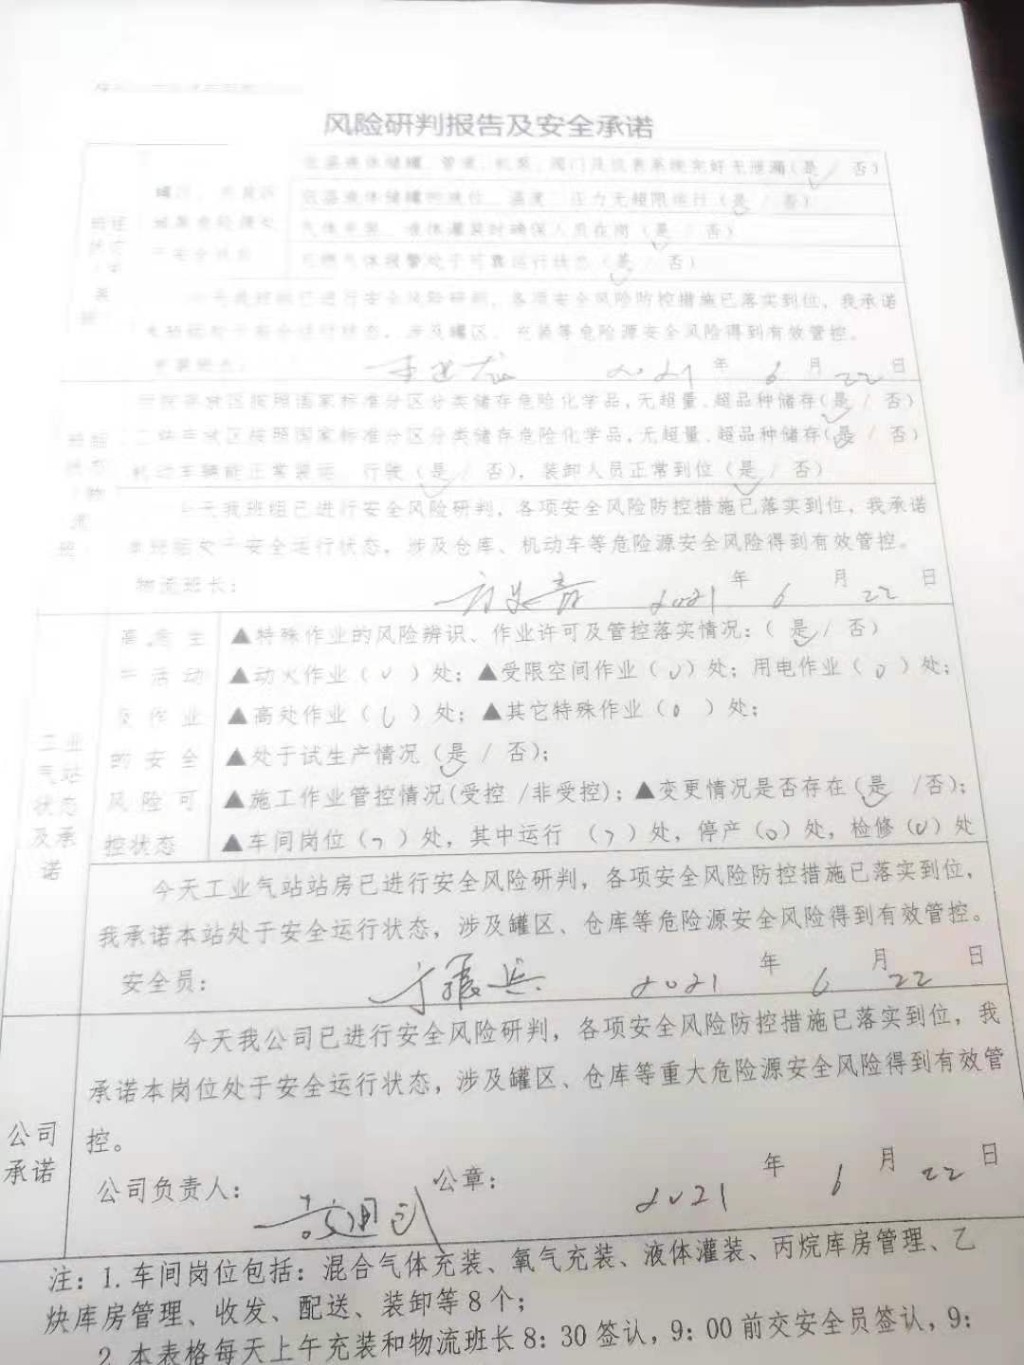 风险研判报告及安全承诺
低温液体储罐、管道、机泵、阀门及仪表系统完好无泄漏(是 / 否)
低温液体储罐的液位、温度、压力无超限运行(是 / 否)
气体充装、液体灌装时确保人员在岗(是 / 否)
可燃气体报警处于可靠运行状态(是 / 否)
进行安全风险研判，各项安全风险防控措施已落实到位，我承诺
安全运行状态，涉及罐区、充装等危险源安全风险得到有效管控。
2021 年 6 月 22 日
按照国家标准分区分类储存危险化学品,无超量、超品种储存(是 / 否)
区按照国家标准分区分类储存危险化学品,无超量、超品种储存(是 / 否)
机动车辆能正常装运、行驶(是 / 否)，装卸人员正常到位(是 / 否)
今天我班组已进行安全风险研判，各项安全风险防控措施已落实到位，我承诺
安全运行状态，涉及仓库、机动车等危险源安全风险得到有效管控。
物流班长： 2021 年 6 月 22 日
工业气站状态及承诺
产活动及作业的安全风险可控状态
▲特殊作业的风险辨识、作业许可及管控落实情况：( 是 / 否)
▲动火作业( 0 )处；▲受限空间作业( 0 )处；用电作业( 0 )处；
▲高处作业( 0 )处；▲其它特殊作业( 0 )处；
▲处于试生产情况(是 / 否)；
▲施工作业管控情况(受控 /非受控)；▲变更情况是否存在(是 /否)；
▲车间岗位(7)处，其中运行 (7)处，停产(0)处，检修(0)处
今天工业气站站房已进行安全风险研判，各项安全风险防控措施已落实到位，
我承诺本站处于安全运行状态，涉及罐区、仓库等危险源安全风险得到有效管控。
安全员： 2021 年 6 月 22 日
公司承诺
今天我公司已进行安全风险研判，各项安全风险防控措施已落实到位，我
承诺本岗位处于安全运行状态，涉及罐区、仓库等重大危险源安全风险得到有效管
控。
公司负责人： 公章： 2021 年 6 月 22 日
注：1.车间岗位包括：混合气体充装、氧气充装、液体灌装、丙烷库房管理、乙
炔库房管理、收发、配送、装卸等8个；
2.本表格每天上午充装和物流班长8：30签认，9：00前交安全员签认，9：